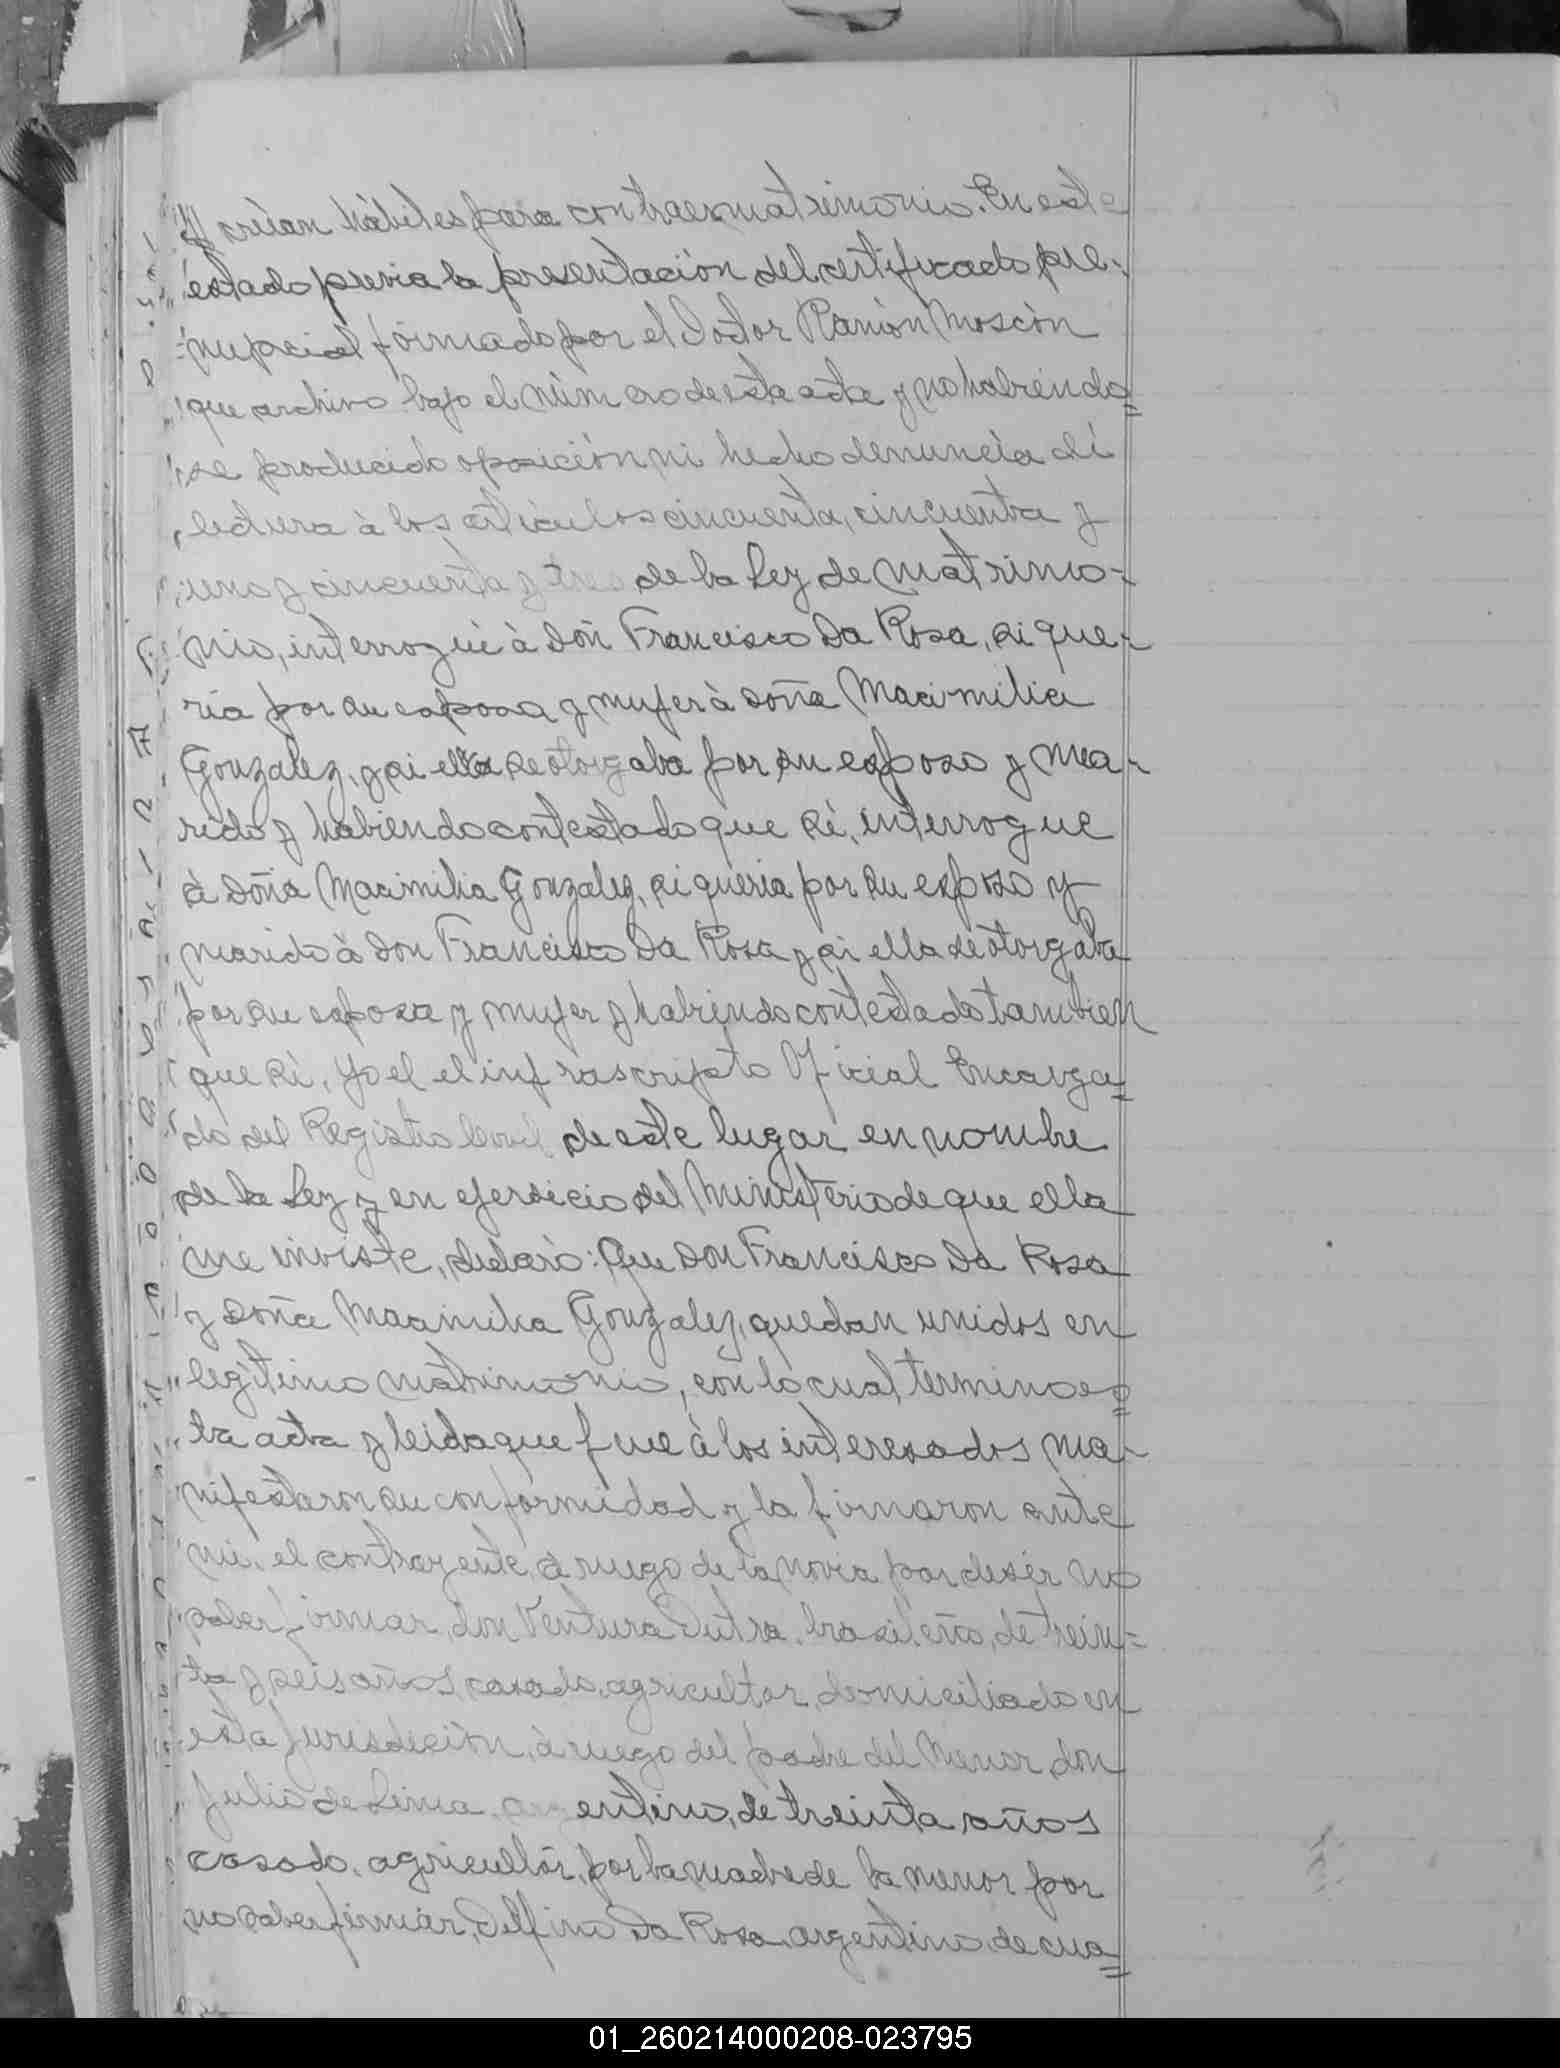 creian hábiles para contraer matrimonio. En este
estado previa la presentación del certificado pre-
nupcial firmado por el Doctor Ramón Moscón
que archivo bajo el número de esta acta y no habiendo=
se producido oposición, ni hecho denuncia dí
lectura à los articulos cincuenta, cincuenta y
uno y cincuenta y tres de la Ley de matrimo-
nio, interrogué à Don Francisco Da Rosa, si que-
ria por su esposa y mujer à doña Macimilia
Gonzalez, y si ella se otorgaba por su esposo y ma-
rido y habiendo contestado que si, interrogue
à Doña Macimilia Gonzalez, si queria por su esposo y
marido à Don Francisco Da Rosa y si ella se otorgaba
por su esposa y mujer y habiendo contestado tambien
que si, yo el el infrascripto Oficial Encarga=
do del Registro Civil de este lugar en nombre
de la Ley y en ejersicio del Ministerio de que ella
me inviste, declaró: Que Don Francisco Da Rosa
y Doña Macimilia Gonzalez, quedan unidos en
legitimo matrimonio, con lo cual termino es=
ta acta y leida que fue à los interesados ma-
nifestaron su conformidad y la firmaron ante
mi, el contrayente, à ruego de la novia por desir no
saber firmar, don Ventura Dutra, brasileño, de trein=
ta y seis años, casado, agricultor, domiciliado en
esta jurisdición, à ruego del padre del Menor, don
Julio de Lima, argentino, de treinta años
casado, agricultor, por la madre de la menor por
no saber firmar, Delfino Da Rosa, argentino, de cua=
01_260214000208-023795